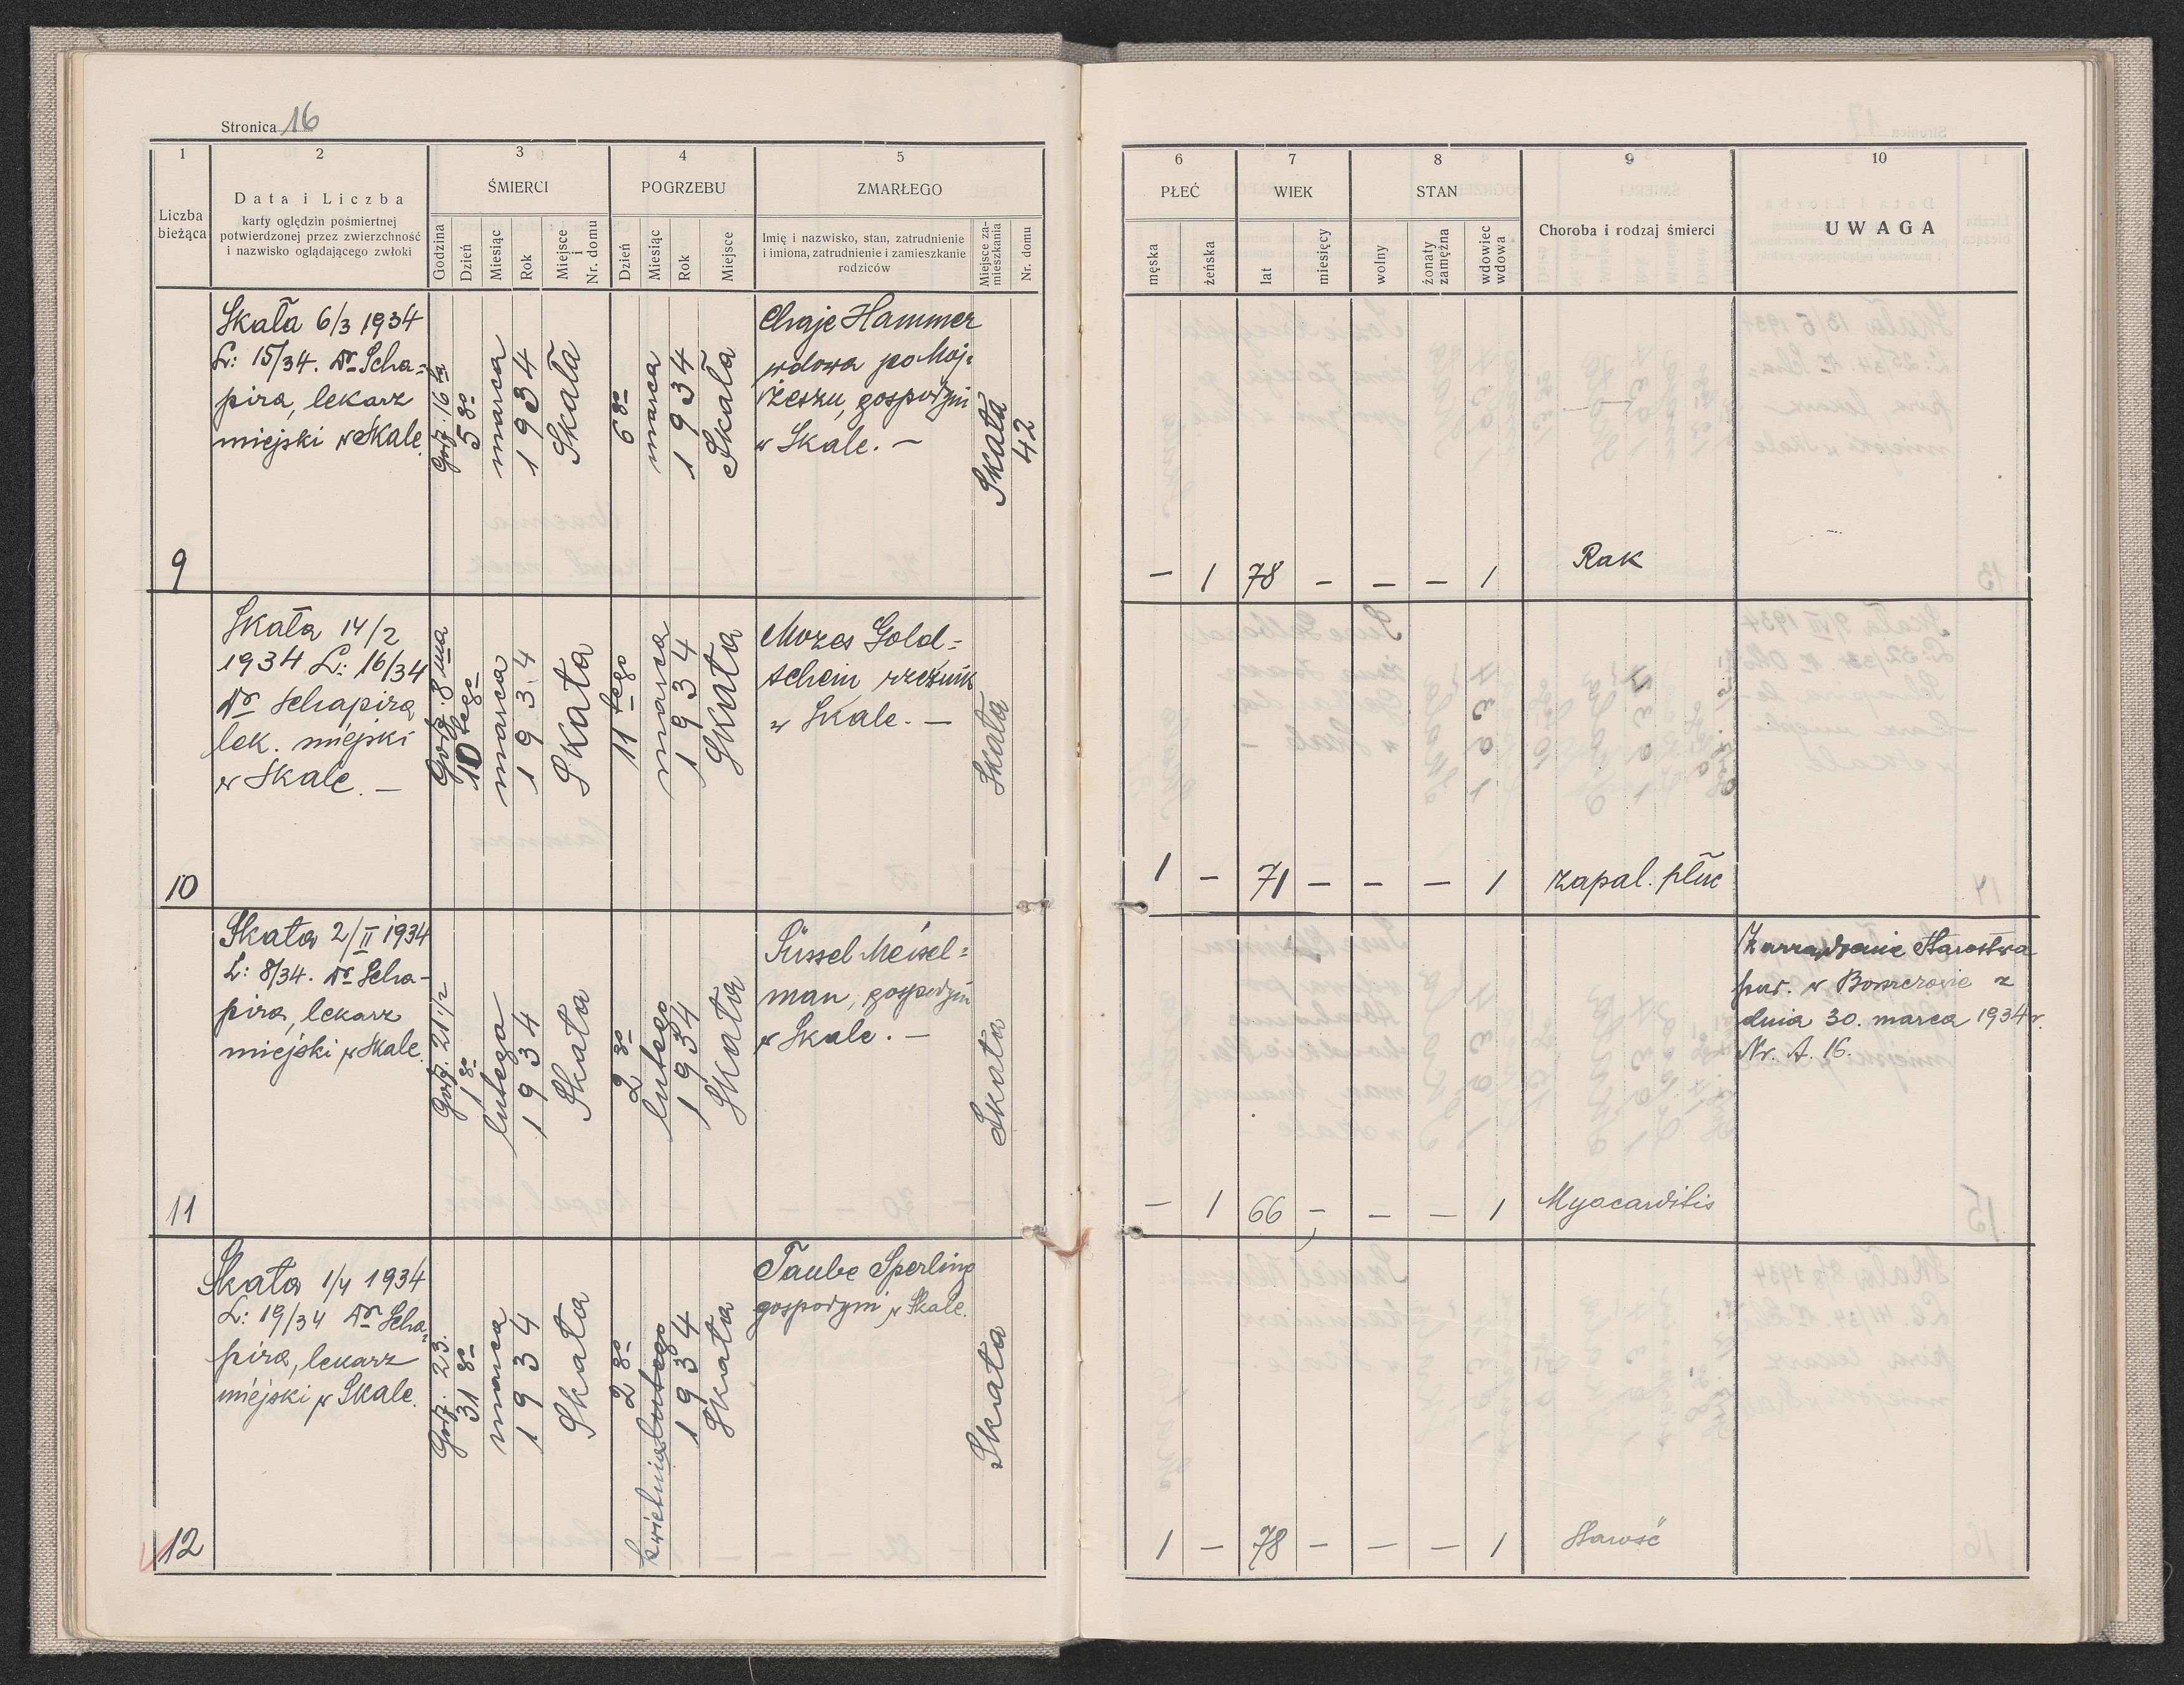 Stronica 16
1 2 3 4 5
Liczba bieżąca
Data i Liczba
karty oględzin pośmiertnej
potwierdzonej przez zwierzchność
i nazwisko oglądającego zwłoki
ŚMIERCI
Godzina
Dzień
Miesiąc
Rok
Miejsce i Nr. domu
POGRZEBU
Dzień
Miesiąc
Rok
Miejsce
ZMARŁEGO
Imię i nazwisko, stan, zatrudnienie
i imiona, zatrudnienie i zamieszkanie
rodziców
Miejsce za-
mieszkania
Nr. domu
6 7 8 9 10
PŁEĆ
męska
żeńska
WIEK
lat
miesięcy
STAN
wolny
żonaty
zamężna
wdowiec
wdowa
Choroba i rodzaj śmierci
UWAGA
9
Skała 6/3 1934
L: 15/34. Dr Scha=
pira, lekarz
miejski w Skale.
Godz. 16 ta
5 go
marca
1934
Skała
6 go
marca
1934
Skała
Chaje Hammer
wdowa po Moj=
żeszu, gospodyni
w Skale. —
Skała
42
— 1 78 — — — 1 Rak
10
Skała 14/2
1934 L: 16/34
Dr Schapira
lek. miejski
w Skale. —
Godz. 8 ma
10 tego
marca
1934
Skała
11 tego
marca
1934
Skała
Mozes Gold=
schein rzeźnik
w Skale. —
Skała
1 — 71 — — — 1 zapal. płuc
11
Skała 2/II 1934
L: 8/34. Dr Scha-
pira, lekarz
miejski w Skale.
Godz. 21 1/2
1 go
lutego
1934
Skała
2 go
lutego
1934
Skała
Süssel Meisel=
man, gospodyni
w Skale. —
Skała
— 1 66 — — — 1 Myocarditis
Zarządzenie Starostwa
pow. w Borszczowie z
dnia 30. marca 1934 r.
Nr. A. 16.
12
Skała 1/4 1934
L: 19/34 Dr Scha=
pira, lekarz
miejski w Skale.
Godz. 23.
31 go
marca
1934
Skała
2 go
kwietnia lutego
1934
Skała
Taube Sperling
gospodyni w Skale.
Skała
1 — 78 — — — 1 Starość